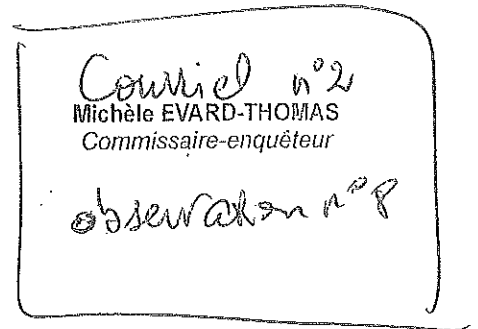 Courriel n°2
Michèle EVARD-THOMAS
Commissaire-enquêteur
observation n°